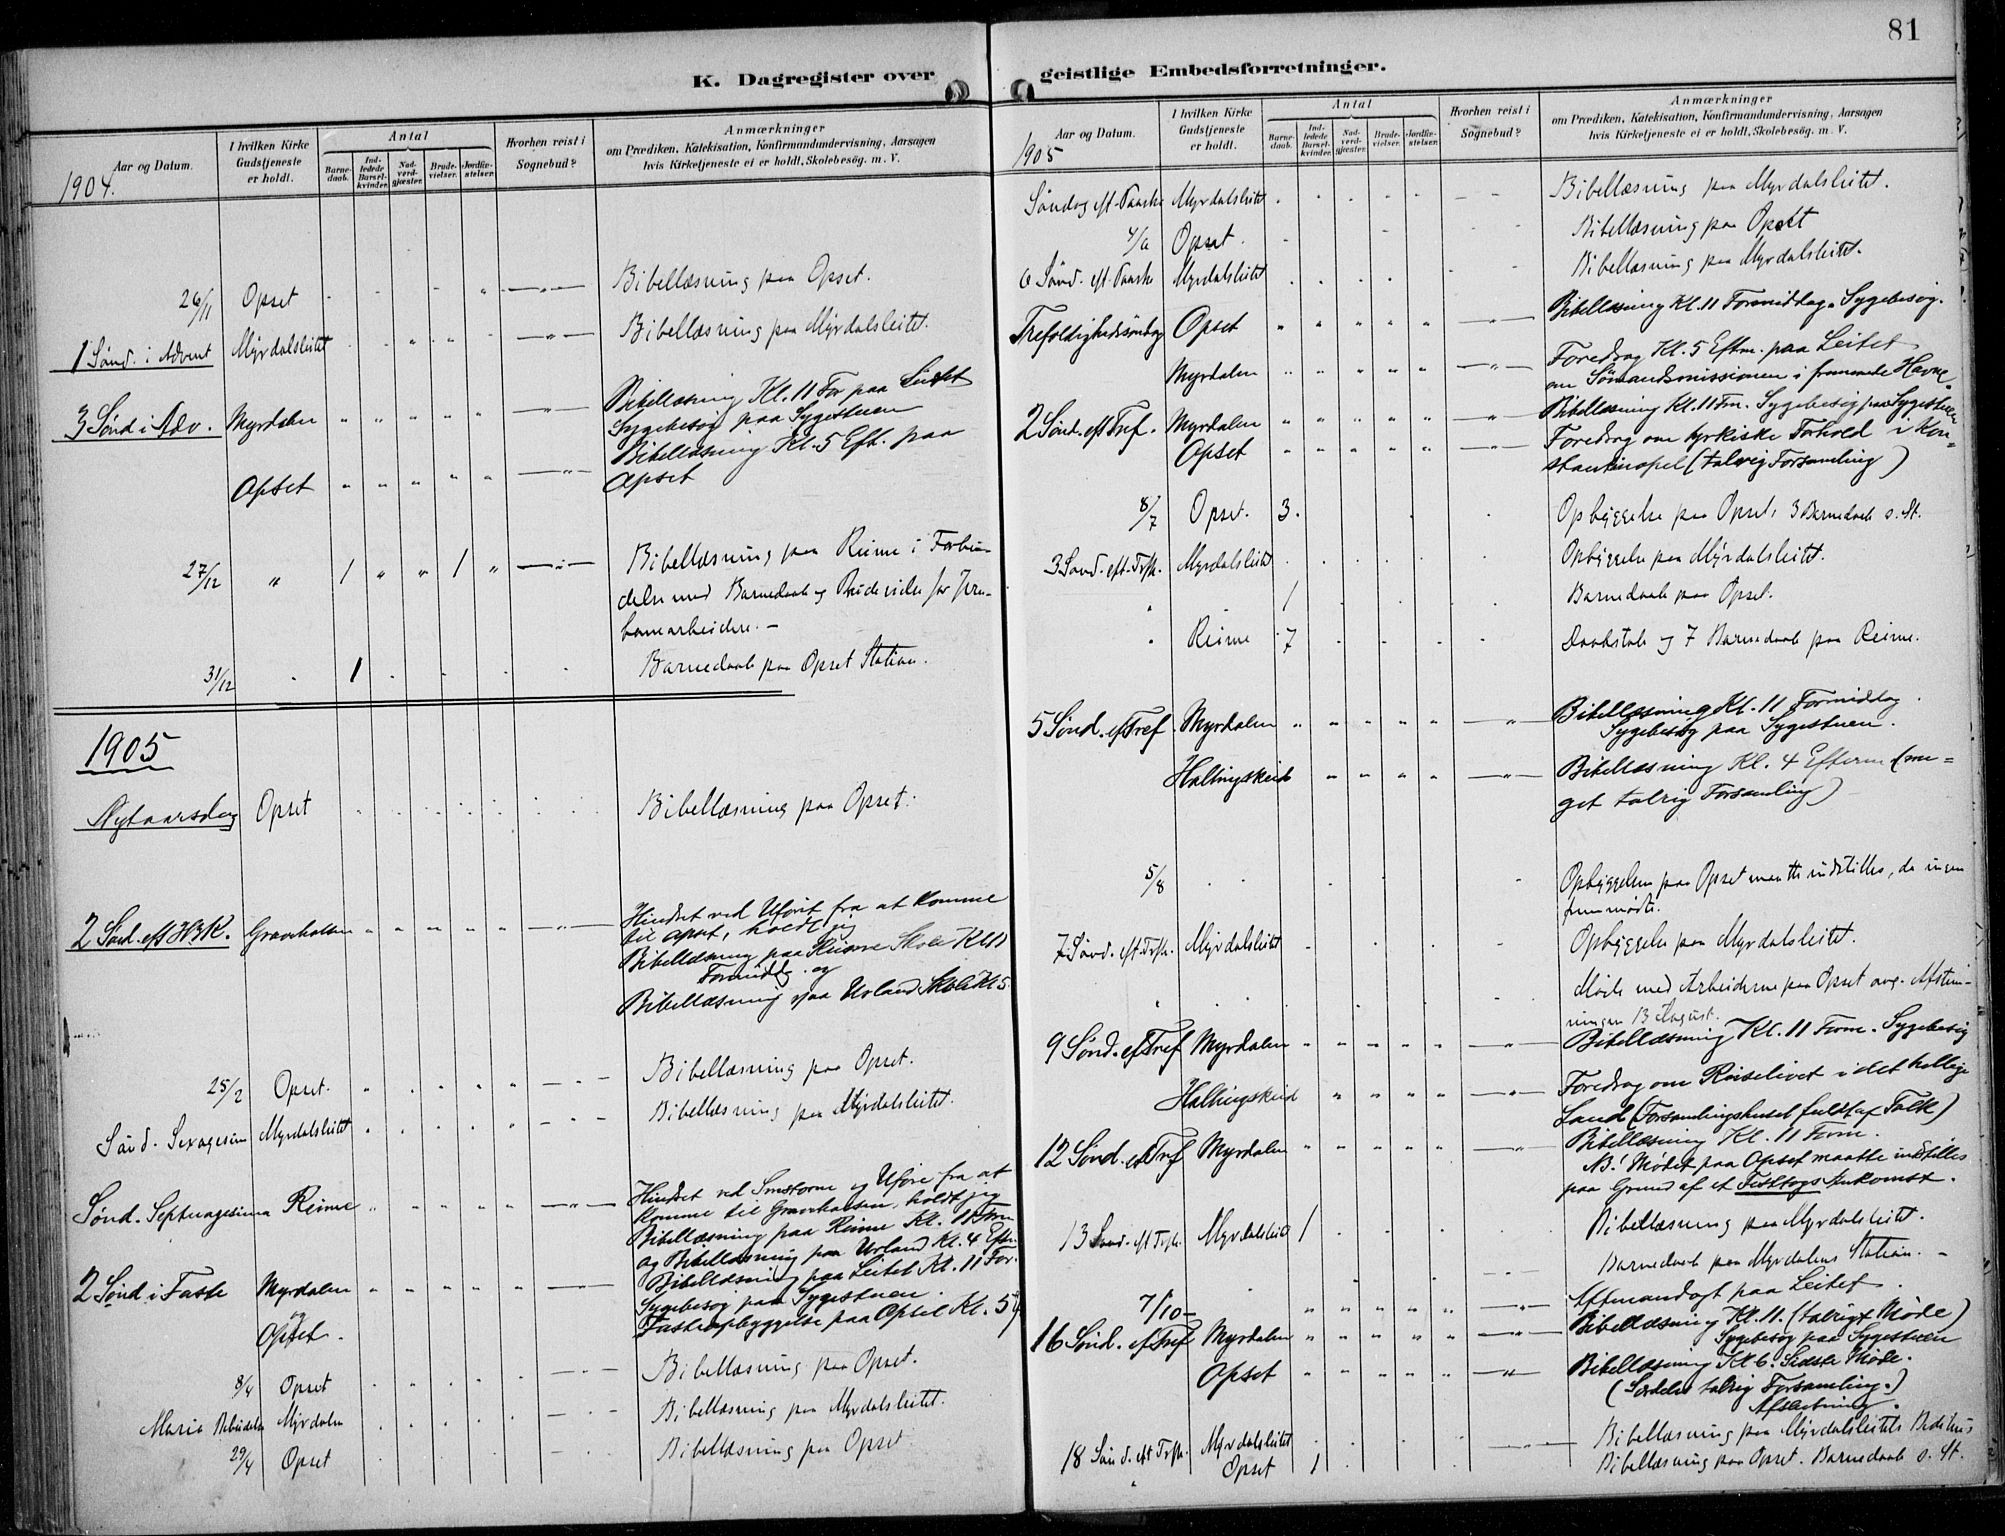 81
K. Dagregister over
geistlige Embedsforretninger.
Aar og Datum.
I hvilken Kirke
Gudstjeneste
er holdt.
Antal
Barne-
daab.
Ind-
ledede
Barsel-
kvinder.
Nad-
verd-
gjæster.
Brude-
vielser.
Jordfæ-
stelser.
Hvorhen reist i
Sognebud?
Anmærkninger
om Prædiken, Katekisation, Konfirmandundervisning, Aarsagen
hvis Kirketjeneste ei er holdt, Skolebesøg. m. V.
1904.
26/11 Opset Bibellæsning paa Opset.
1 Sønd. i Advent Myrdalsleitet Bibellæsning paa Myrdalsleitet.
3 Sønd i Adv. Myrdalen Bibellæsning Kl. 11 For paa Leitet
Sygebesøg paa Sygestuen
Bibellæsning Kl. 5 Eft. paa
Opset Opset
27/12 " 1 " " 1 " Bibellæsning paa Reime i Forbin-
delse med Barnedaab og Brudevielse for Jern-
banearbeidere. –
31/12 1 Barnedaab paa Opset Station.
1905
Nytaarsdag Opset Bibellæsning paa Opset.
2 Sønd. eft H3K. Gravehalsen Hindret ved Uføret fra at komme
til Opset, holdt jeg
Bibellæsning paa Reime Skole Kl 11
Formidd. og
Bibellæsning paa Urland Skole Kl 5.
25/2 Opset. Bibellæsning paa Opset.
Sønd. Sexagesim Myrdalsleitet Bibellæsning paa Myrdalsleitet.
Sønd. Septuagesima Reime Hindret ved Snestorm og Uføre fra at
komme til Gravehalsen, holdt jeg
Bibellæsning paa Reime Kl. 11 Form
og Bibellæsning paa Urland Kl. 4 Eftm.
2 Sønd i Faste Myrdalen Bibellæsning paa Leitet Kl. 11 For.
Sygebesøg paa Sygestuen.
og
Opset. Fasteopbyggelse paa Opset Kl. 5
8/4 Opset Bibellæsning paa Opset.
Maria Bebudelse Myrdalen Bibellæsning paa Myrdalsleitet.
29/4 Opset Bibellæsning paa Opset
Aar og Datum.
I hvilken Kirke
Gudstjeneste
er holdt.
Antal
Barne-
daab.
Ind-
ledede
Barsel-
kvinder.
Nad-
verd-
gjæster.
Brude-
vielser.
Jordfæ-
stelser.
Hvorhen reist i
Sognebud?
Anmærkninger
om Prædiken, Katekisation, Konfirmandundervisning, Aarsagen
hvis Kirketjeneste ei er holdt, Skolebesøg. m. V.
1905
Søndag eft. Paaske Myrdalsleitet Bibellæsning paa Myrdalsleitet.
Opset. Bibellæsning paa Opset
6 Sønd. eft. Paaske Myrdalsleitet Bibellæsning paa Myrdalsleitet.
Trefoldighedsøndag Opset Bibellæsning Kl. 11 Formiddag. Sygebesøg.
Myrdalen Foredrag Kl. 5 Eftm. paa Leitet
om Sømandsmissionen i fremmede Havne
2 Sønd. eft Tref. Myrdalen Bibellæsning Kl. 11 Fm. Sygebesøg paa Sygestuen
Opset Foredrag om tyrkiske Forhold i Kon-
stantinopel (talrig Forsamling)
8/7 Opset. 3. Opbyggelse paa Opset, 3 Barnedaab s. St.
3 Sønd. eft. Trfh. Myrdalsleitet Opbyggelse paa Myrdalsleitet.
1 Barnedaab paa Opset.
Reime 7 Daabstale og 7 Barnedaab paa Reime.
5 Sønd. eft Tref Myrdalen Bibellæsning Kl. 11 Formiddag
Sygebesøg paa Sygestuen.
Hallingskeid Bibellæsning Kl. 4 Efterm (me-
get talrig Forsamling)
5/8 Opbyggelsen paa Opset maatte indstilles, da ingen
fremmødte.
7 Sønd. eft. Trfh. Myrdalsleitet Opbyggelse paa Myrdalsleitet.
Møde med Arbeiderne paa Opset ang. Afstem-
ningen 13 August.
9 Sønd. eft Tref Myrdalen Bibellæsning Kl. 11 Form. Sygebesøg
Hallingskeid Foredrag om Reiselivet i det hellige
Land (Forsamlingshuset fuldt af Folk)
12 Sønd. eft Tref Myrdalen Bibellæsning Kl. 11 Form.
NB! Mødet paa Opset maatte indstilles
paa Grund af et Festtogs Ankomst.
13 Sønd. eft Trfh. Myrdalsleitet 1 Bibellæsning paa Myrdalsleitet.
Barnedaab paa Myrdalens Station. –
7/10 Aftenandagt paa Leitet.
16 Sønd. eft Tref Myrdalen Bibellæsning Kl. 11. (talrigt Møde)
Sygebesøg paa Sygestuen
Opset Bibellæsning Kl 6. Sidste Møde.
(Særdeles talrig Forsamling.)
Afslutning.
18 Sønd. eft Trfh. Myrdalsleitet Bibellæsning paa Myrdalsleitets Bedehus
Opset 1 Bibellæsning paa Opset. Barnedaab s. St.